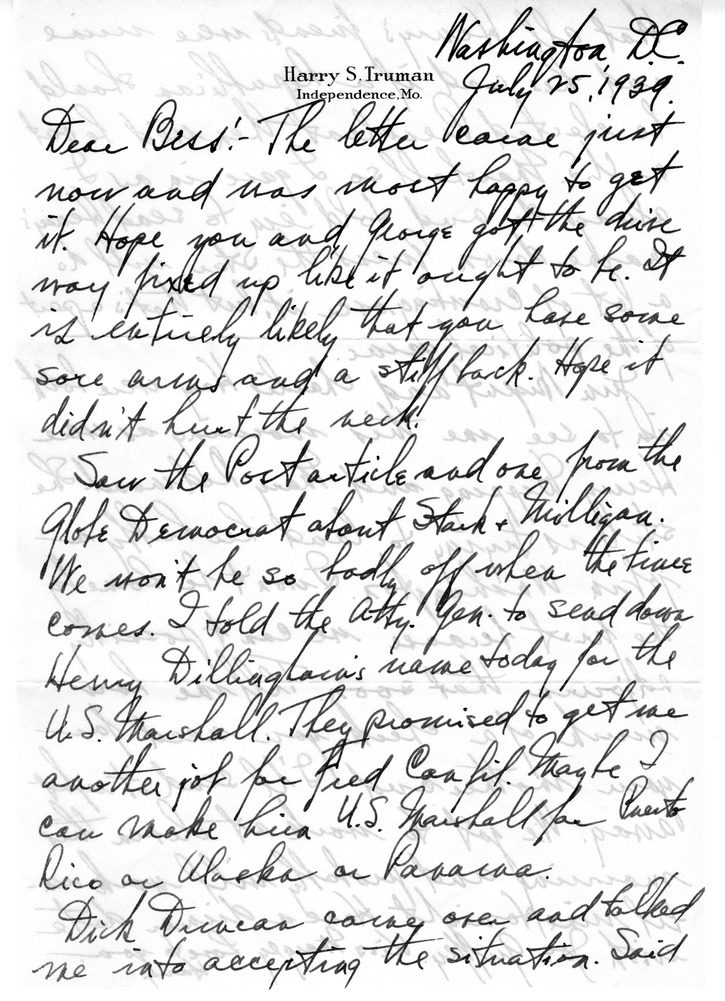 Washington, D.C.
Harry S. Truman
Independence, Mo.
July 25, 1939.
Dear Bess:- The letter came just
now and was most happy to get
it. Hope you and George got the drive
way fixed up like it ought to be. It
is entirely likely that you have some
sore arms and a stiff back. Hope it
didn't hurt the neck!
Saw the Post article and one from the
Globe Democrat about Stark & Milligan.
We won't be so badly off when the time
comes. I told the Atty. Gen. to send down
Henry Dillingham's name today for the
U.S. Marshall. They promised to get me
another job for Fred Canfil. Maybe I
can make him U.S. Marshall for Puerto
Rico or Alaska or Panama.
Dick Duncan came over and talked
me into accepting the situation. Said